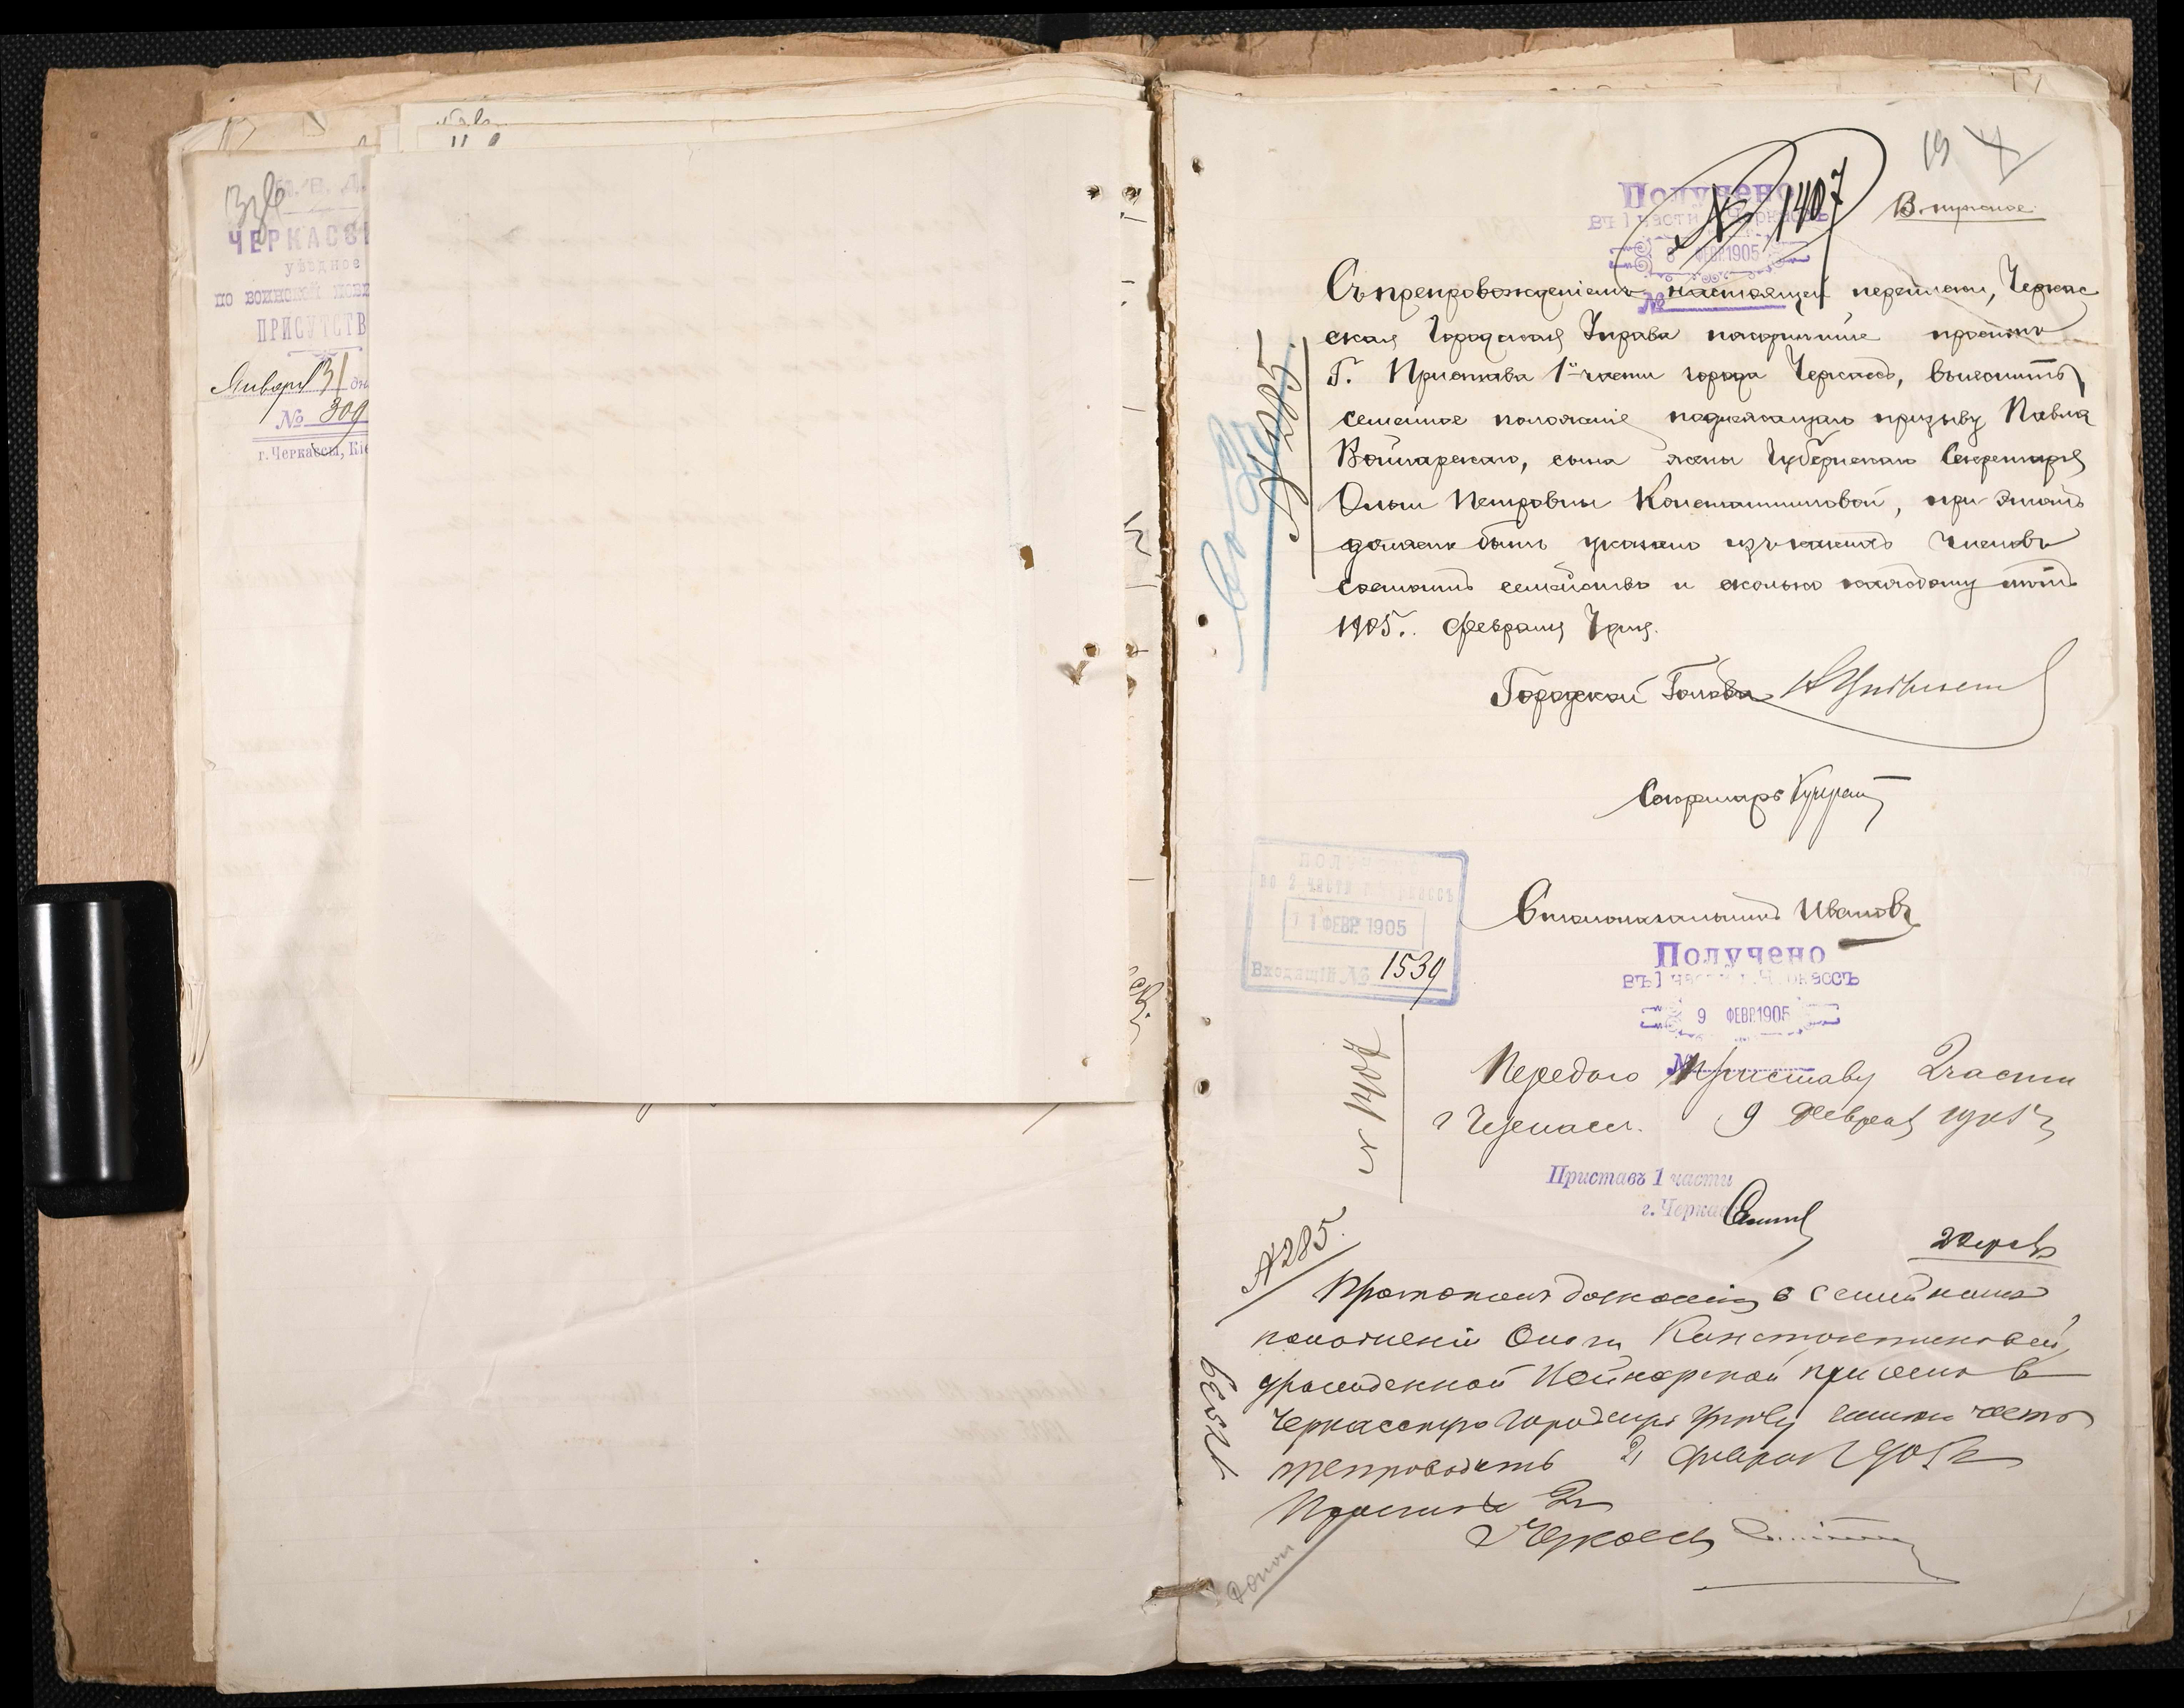 М. В. Д.
ЧЕРКАССК
уѣздное
по воинской пови
ПРИСУТСТВ
Января 31 дн
№ 309
г. Черкассы, Кіе
19
№ 1407
Получено
въ 1 части г. Черкассъ
8 ФЕВР. 1905
№
Съ препровожденіемъ настоящей переписки, Черкас
ская Городская Управа покорнѣйше проситъ
Г. Пристава 1й части города Черкассъ, выяснить
семейное положеніе подлежащаго призыву Павла
Войнарскаго, сына жены Губернскаго Секретаря
Ольги Петровны Константиновой, при этомъ
должно быть указано изъ какихъ членовъ
состоитъ семейство и сколько каждому лѣтъ
1905. Февраля 7 дня.
№ 285.
Городской Голова
Секретарь
Столоначальникъ Ивановъ
ПОЛУЧЕНО
во 2 части г. Черкассъ
11 ФЕВР. 1905
Входящій № 1539
Получено
въ 1 части г. Черкассъ
9 ФЕВР. 1905
№
№ 1407
Передаю Приставу 2 части
г Черкассъ. 9 Февраля 1905 г
Приставъ 1 части
г. Черкассъ
№ 285.
Протоколъ дознанія о семейномъ
положеніи Ольги Константиновой,
урожденной Войнарской при семъ в
Черкасскую Городскую Управу имѣю честь
препроводить 21 Февраля 1905 г
Приставъ 2 ч
г Черкассъ
№ 1539